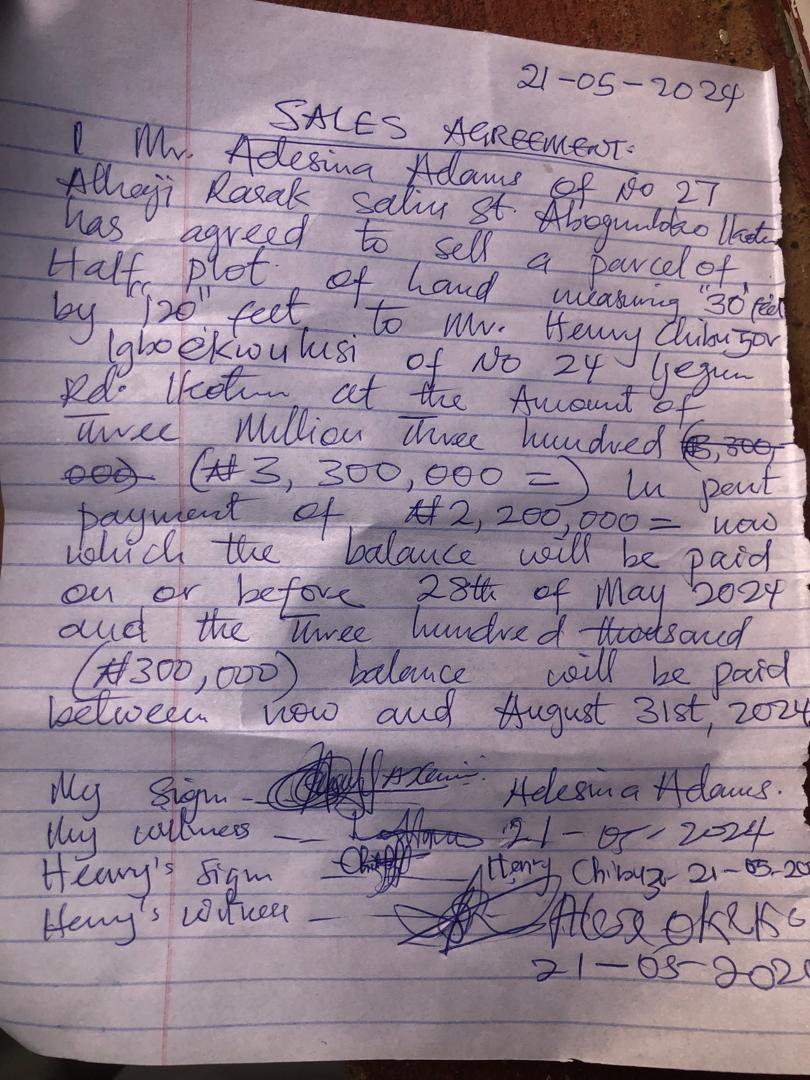 21-05-2024
SALES AGREEMENT.
I Mr. Adesina Adams of No 27
Alhaji Rasak Saliu St. Abogunloko Ikotun
has agreed to sell a parcel of
Half plot of land measuring "30" feet
by "120" feet to Mr. Henry Chibuzor
Igboekwulusi of No 24 Ijegun
Rd. Ikotun at the Amount of
Three Million Three hundred (3,300,
000) (₦3,300,000=) In part
payment of ₦2,200,000= now
which the balance will be paid
on or before 28th of May 2024
and the Three hundred thousand
(₦300,000) balance will be paid
between now and August 31st, 2024
My Sign - Adesina Adams.
My witness - 21-05-2024
Henry's Sign Henry Chibuzr 21-05-20
Henry's witness -
21-05-202